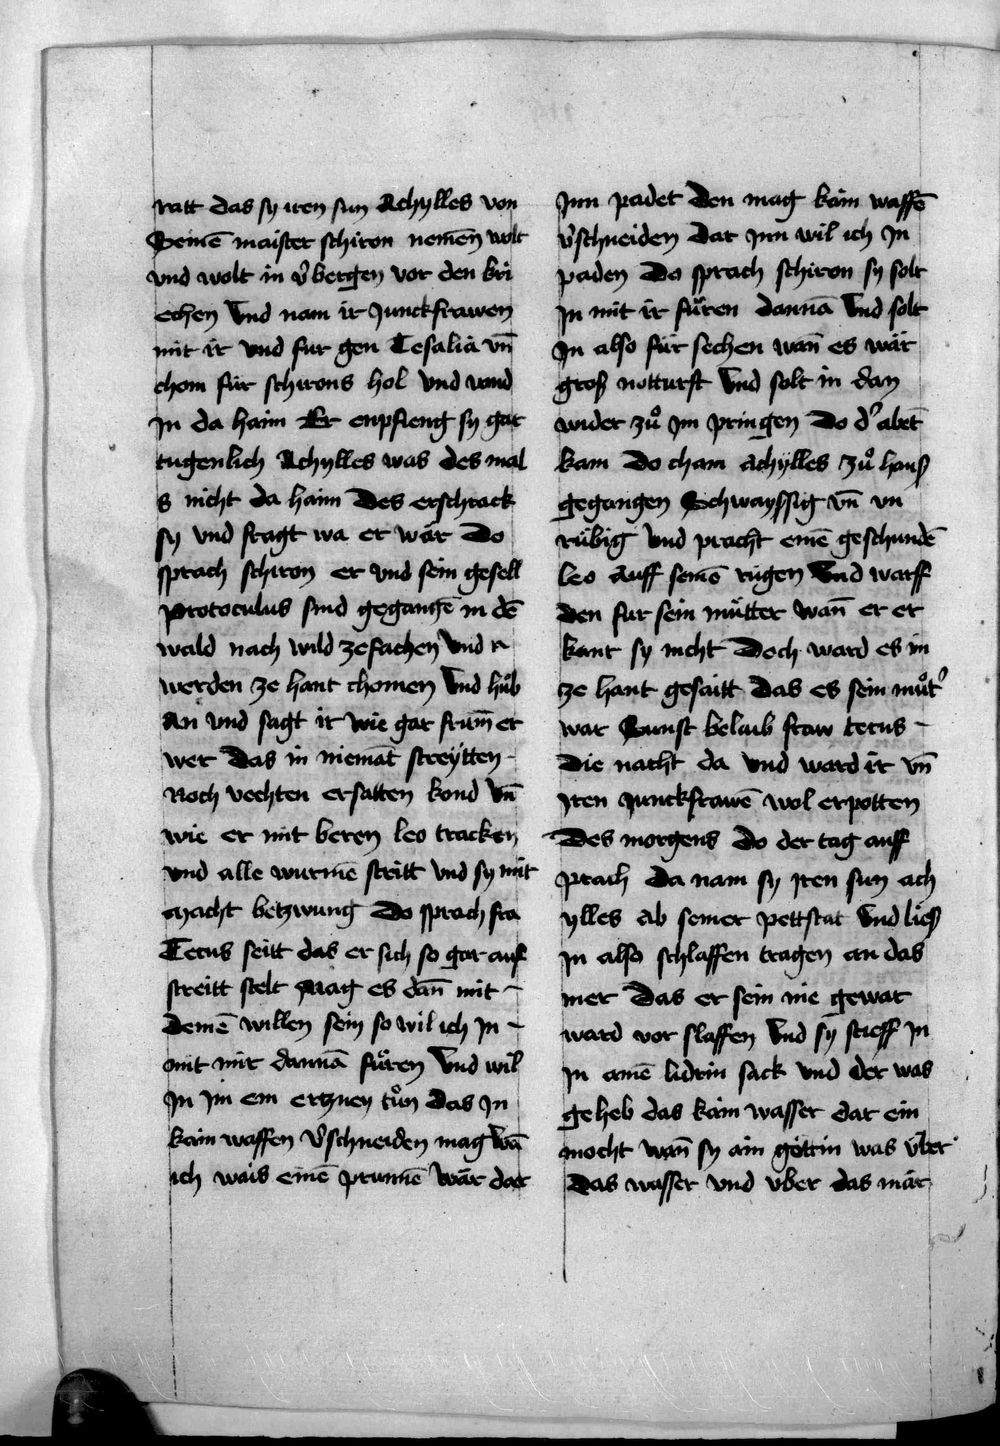 ratt das sy iren sun Achylles von
Seinē maister schiron nemen wolt
vnd wolt in v̓bergen vor den kri
echen Vnd nam ir Junckfrawen
mit ir vnd fur gen Tesalia vn̄
chom für schirons hol vnd vand
In da haim Er enpfieng sy gar
tugenlich Achylles was des mal
s nicht da haim Des erschrack
sy vnd fragt wa er wär Do
sprach schiron er vnd sein gesell
protoculus sind gegangē in dē
wald nach wild ze fachen Vnd
werden ze hant chomen Vnd hůb
An vnd sagt ir wie gar frum̄ er
wer Das in niemāt streytten
Noch vechten ersatten kond Vn̄
wie er mit beren leo tracken
vnd alle wurmē streitt vnd sy mit
Macht betzwung Do sprach fra
Tetus seitt das er sich so gar auf
streitt stelt Mag es dan̄ mit
deinē willen sein so wil ich In
mit mir dannā fůren Vnd wil
In Im ein ertzney tůn das In
kain waffen v̓schneiden mag wā
ich wais einē prunnē wär dar
Inn padet Den mag kain waffē
v̓schneiden Dar Inn wil ich In
paden Do sprach schiron sy solt
In mit ir fůren dannā Vnd solt
In also für sechen wan̄ es wär
groß notturft Vnd solt in dan
wider zů Im pringen Do d̓ abēt
kam Do cham Achylles zů hauß
gegangen Schwayssig vn̄ vn
rübig Vnd pracht einē geschundē
leo Auff seinē rügen Vnd warff
den fur sein můtter wan̄ er er
kant sy nicht Doch ward es im
ze hant gesaitt Das es sein můt̓
war Sunst belaib fraw tetus
Die nacht da vnd ward ir vn̄
Iren Junckfrawē wol erpotten
Des morgens do der tag auff
prach da nam sy Iren sun ach
ylles Ab seiner pettstat Vnd ließ
In also schlaffen tragen an das
mer Das er sein nie gewar
ward vor slaffen Vnd sy stieff In
In ainē lidrin sack vnd der was
geheb das kain wasser dar ein
mocht wan̄ sy ain göttin was v̓ber
Das wasser vnd vber das mär